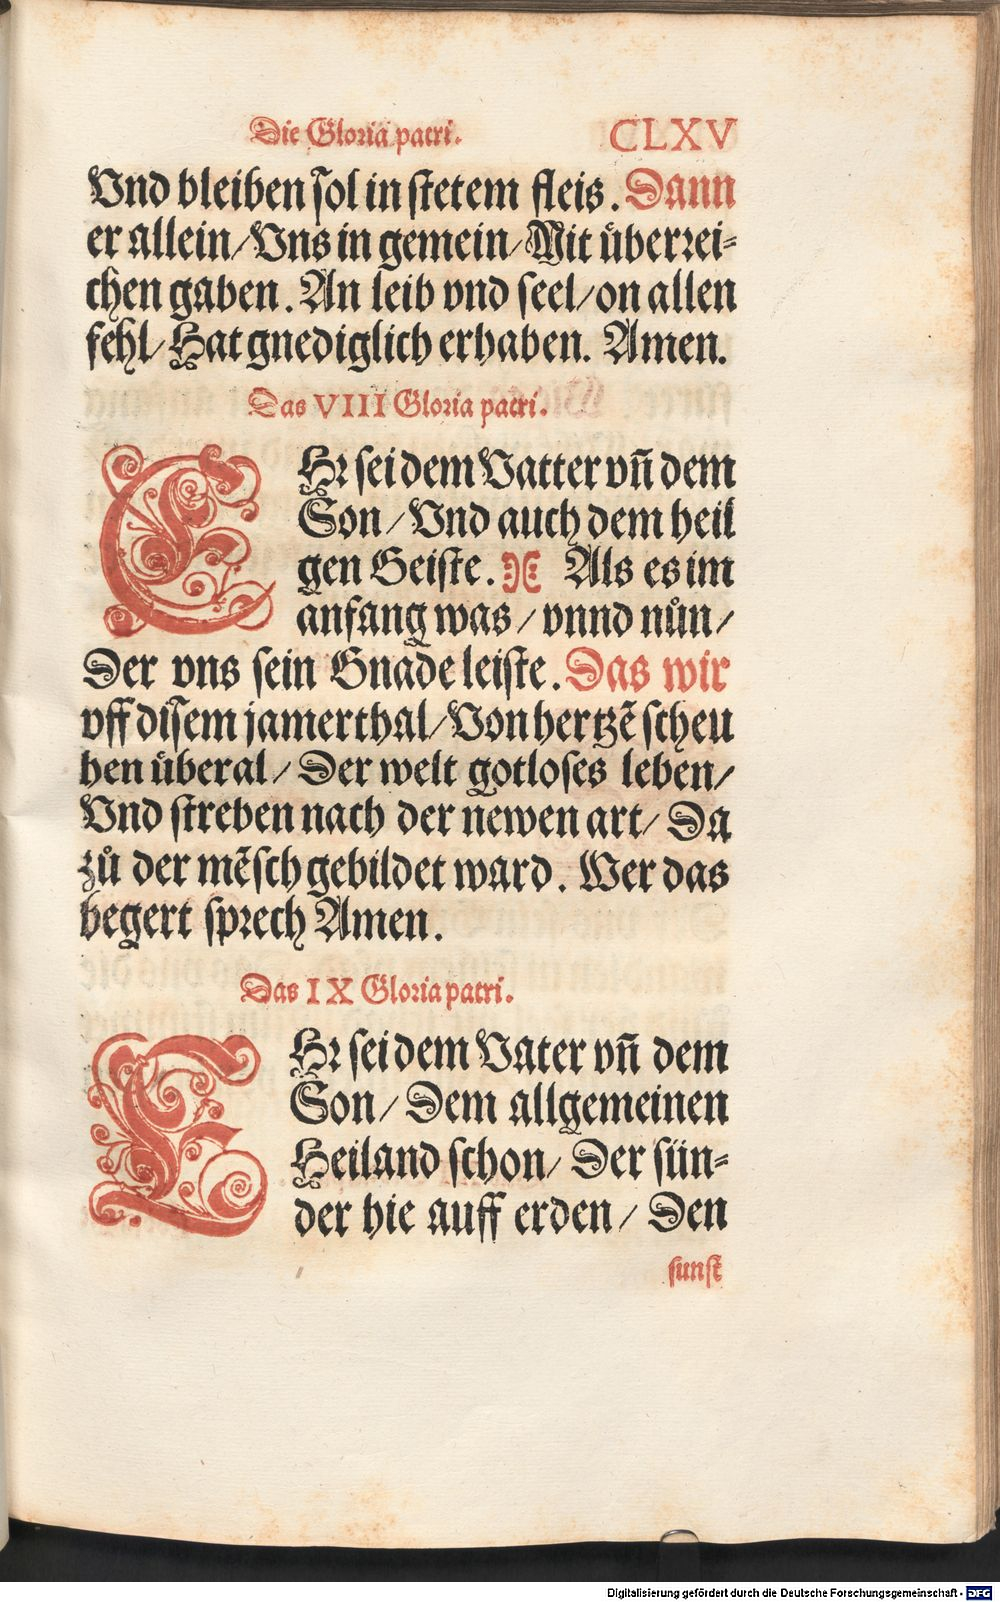 Die Gloria patri. CLXV
Vnd bleiben sol in stetem fleis. Dann
er allein/Vns in gemein/Mit überrei-
chen gaben. An leib vnd seel/on allen
fehl/Hat gnediglich erhaben. Amen.
Das VIII Gloria patri.
EHr sei dem Vatter vn̄ dem
Son/Vnd auch dem heil
gen Geiste. Als es im
anfang was/vnnd nůn/
Der vns sein Gnade leiste. Das wir
vff disem jamerthal/Von hertzē scheu
hen überal/Der welt gotloses leben/
Vnd streben nach der newen art/Da
zů der mēsch gebildet ward. Wer das
begert sprech Amen.
Das IX Gloria patri.
EHr sei dem Vater vn̄ dem
Son/Dem allgemeinen
Heiland schon/Der sün-
der hie auff erden/Den
sunst
Digitalisierung gefördert durch die Deutsche Forschungsgemeinschaft - DFG